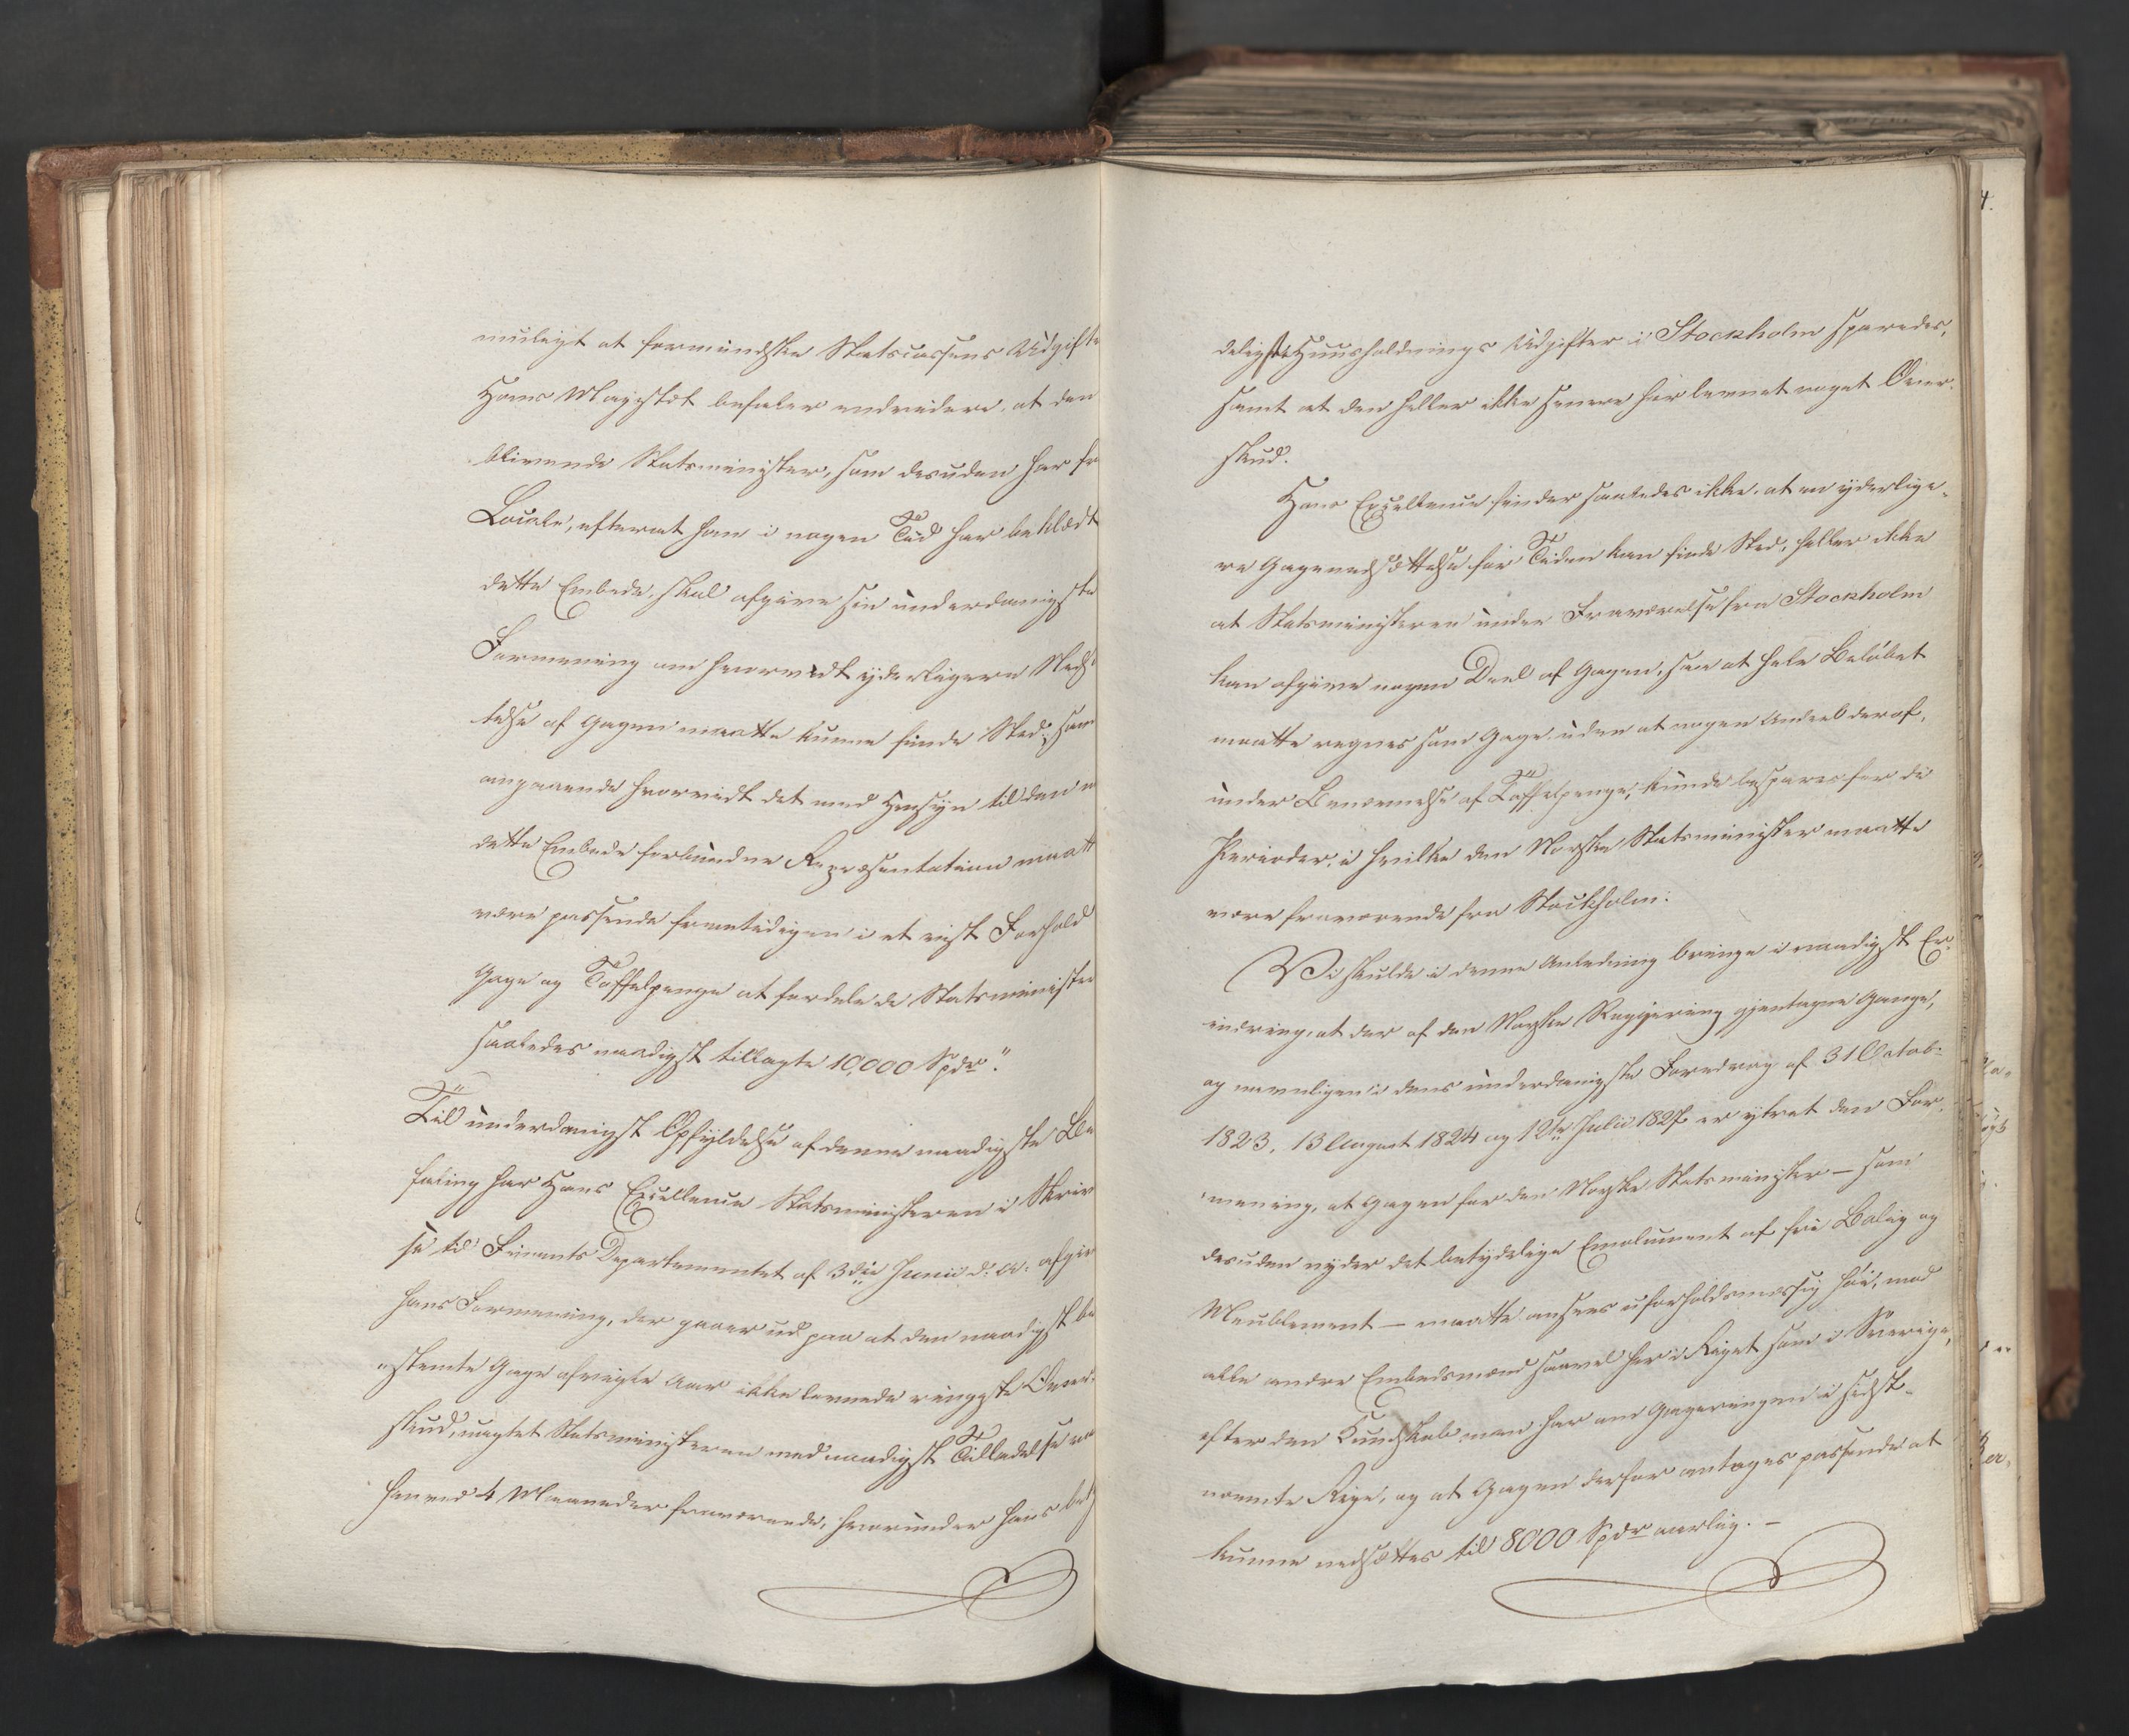 muligt at formindske Statscassens Udgifte
Hans Majestæt befaler endvidere, at den
blivende Statsminister, som desuden har fr
Locale, efterat han i nogen Tid har beklædt
dette Embede, skal afgive sin underdanigste
Formening om hvorvidt yderligere Neds
telse af Gagen maatte kunne finde Sted, sam
angaaende hvorvidt det med Hensyn til den m
dette Embede forbundne Repræsentation maatt
være passende fremtidigen i et vist Forhold
Gage og Taffelpenge at fordele de Statsminister
saaledes naadigst tillagte 10,000 Spdr."
Til underdanigst Opfyldelse af denne naadigste Be
faling har Hans Excellence Statsministeren i Skriv
se til Finants Departementet af 3die Junii d. A. afgiv
hans Formening, der gaaer ud paa at den naadigst be
"stemte Gage afvigte Aar ikke levnede ringeste Over-
skud, uagtet Statsministeren med naadigst Tilladelse va
henved 4 Maaneder fraværende, hvorunder hans bet
deligste Huusholdnings Udgifter i Stockholm sparedes,
samt at den heller ikke senere har levnet noget Over-
skud.
Hans Excellence finder saaledes ikke, at en yderlige-
re Gagenedsættelse for Tiden kan finde Sted, heller ikke
at Statsministeren under Fraværelse fra Stockholm
kan afgive nogen Deel af Gagen, saa at hele Beløbet
maatte regnes som Gage, uden at nogen Andeel deraf,
under Benævnelse af Taffelpenge, kunde bespares for de
Perioder, i hvilke den Norske Statsminister maatte
være fraværende fra Stockholm.
Vi skulde i denne Anledning bringe i naadigst Er-
indring, at der af den Norske Regjering gjentagne Gange,
og navnligen i dens underdanigste Foredrag af 31 Octob:
1823, 13 August 1824 og 12te Julii 1827 er yttret den For-
mening, at Gagen for den Norske Statsminister – som
desuden nyder det betydelige Emolument af frie Bolig og
Meublement – maatte ansees uforholdsmæssig høi, mod
alle andre Embedsmænd saavel her i Riget som i Sverige,
efter den Kundskab man har om Gageringen i sidst-
nævnte Rige, og at Gagen derfor antages passende at
kunne nedsættes til 8000 Spdr aarlig. –